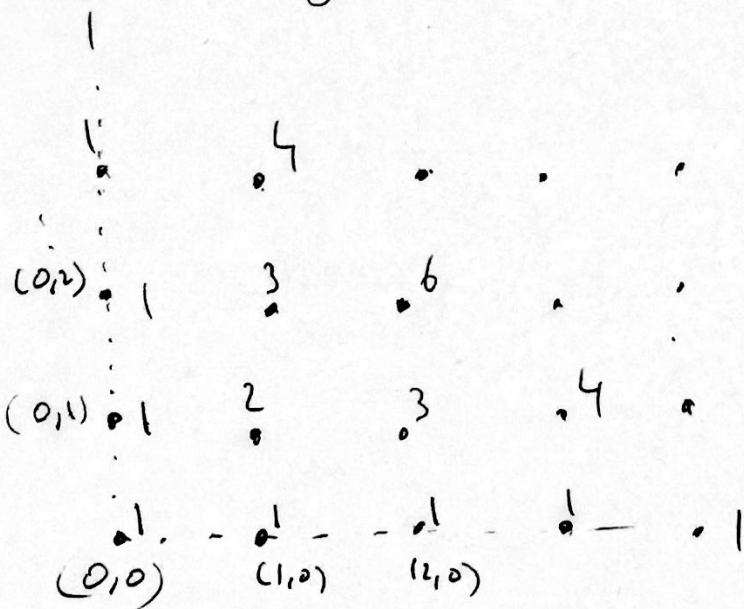 1
1 4
(0,2) 1 3 6
(0,1) 1 2 3 4
1 1 1 1 1
(0,0) (1,0) (2,0)